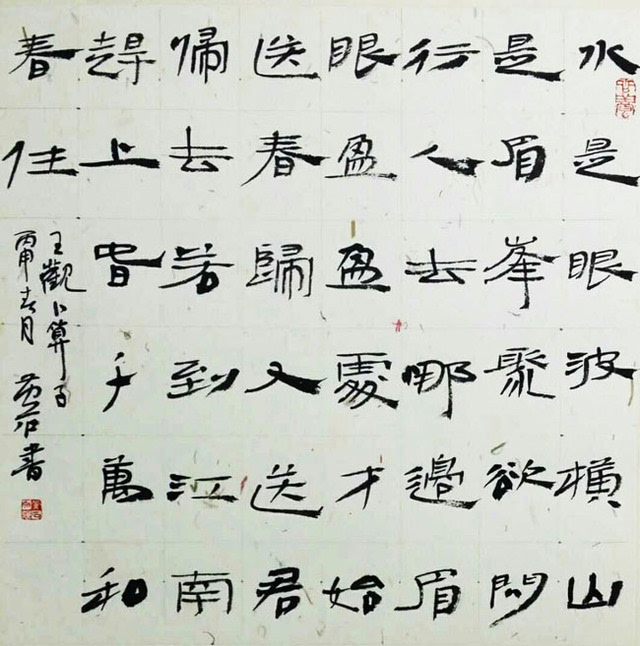 水是眼波橫山
是眉峯聚欲問
行人去哪邊眉
眼盈盈處才始
送春歸又送君
帰去若到江南
趕上旾千萬和
春住
王觀卜算子
丙申春月 書